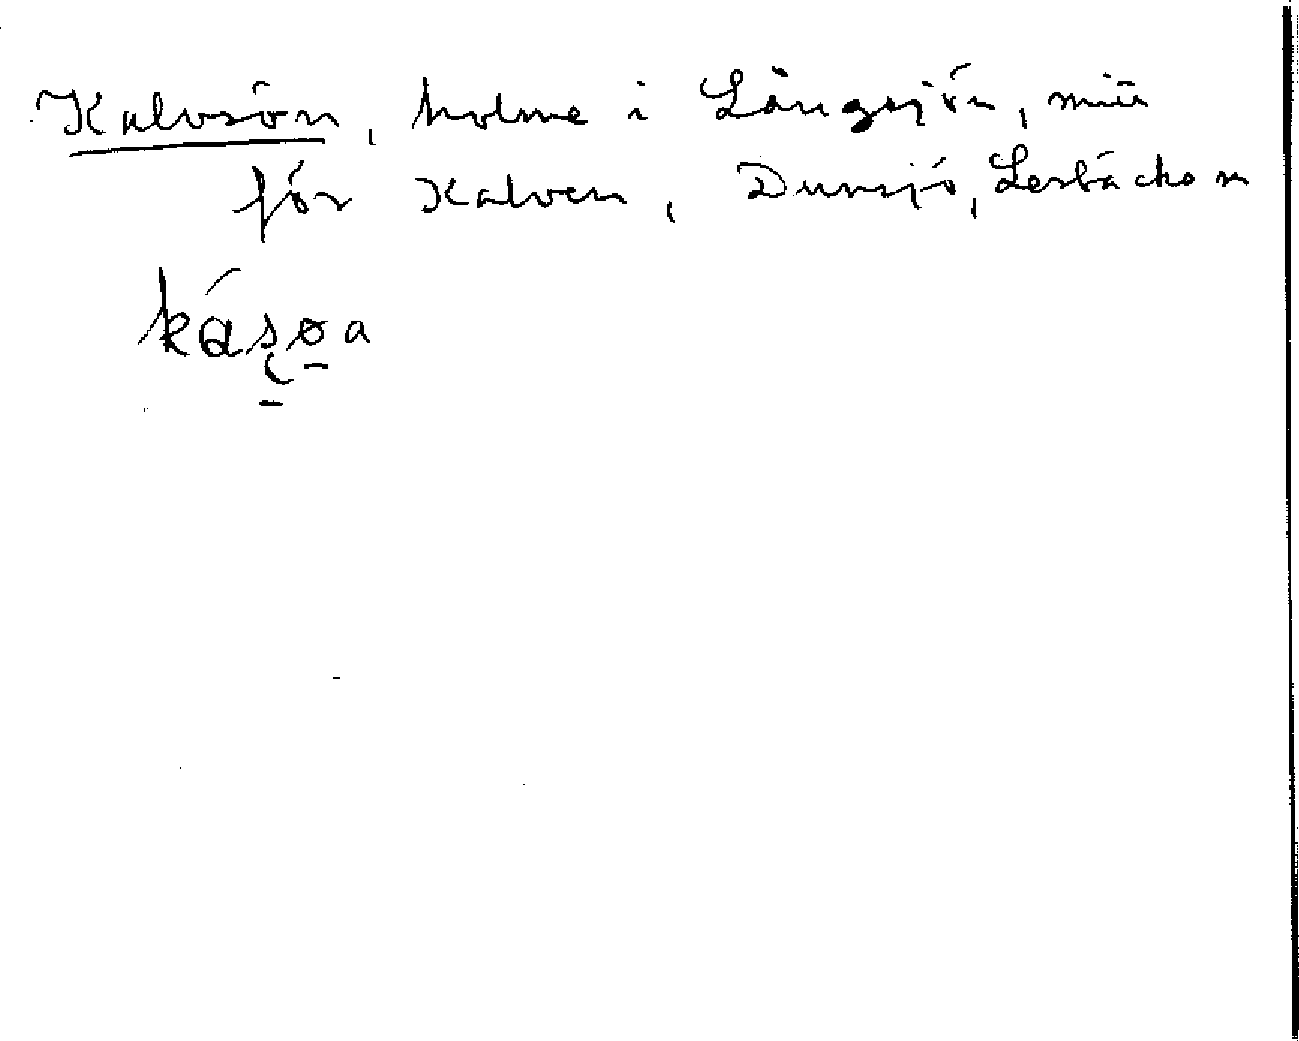 Kalvsön, holme i Långsjön, mitt
för Kalven, Dunsjö, Lerbäcks sn
kásøa